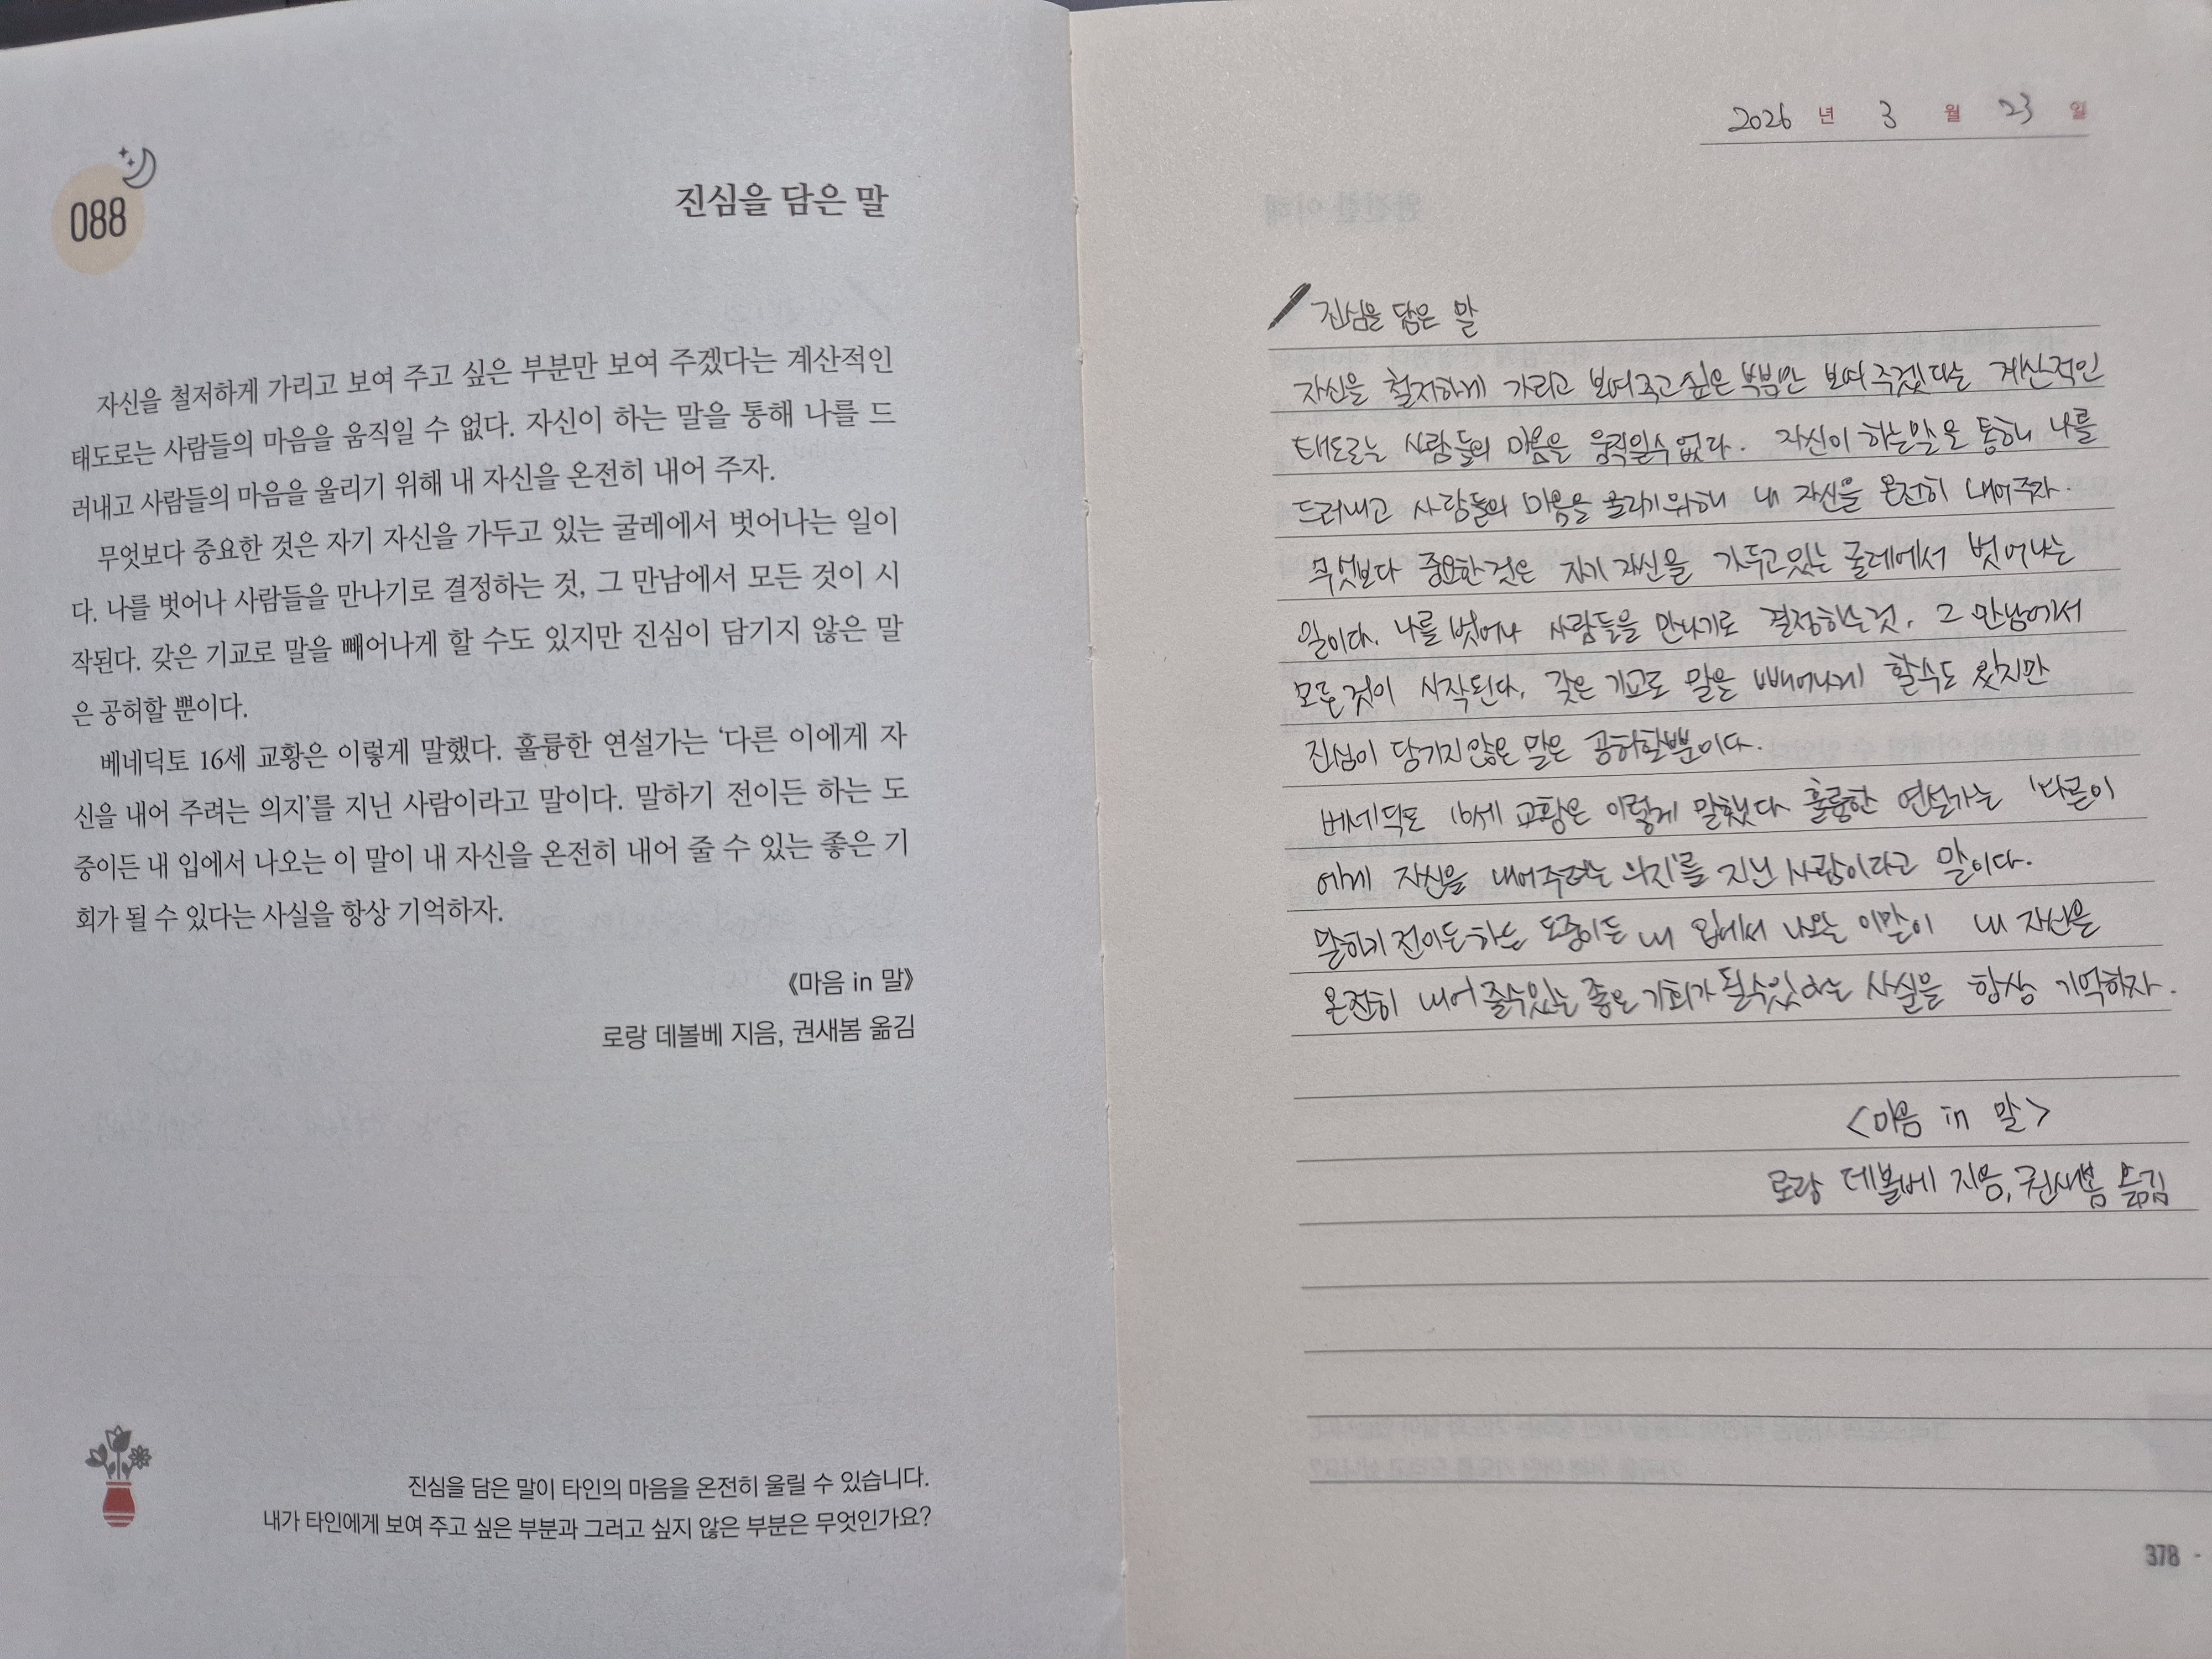 088
진심을 담은 말
자신을 철저하게 가리고 보여 주고 싶은 부분만 보여 주겠다는 계산적인
태도로는 사람들의 마음을 움직일 수 없다. 자신이 하는 말을 통해 나를 드
러내고 사람들의 마음을 울리기 위해 내 자신을 온전히 내어 주자.
무엇보다 중요한 것은 자기 자신을 가두고 있는 굴레에서 벗어나는 일이
다. 나를 벗어나 사람들을 만나기로 결정하는 것, 그 만남에서 모든 것이 시
작된다. 갖은 기교로 말을 빼어나게 할 수도 있지만 진심이 담기지 않은 말
은 공허할 뿐이다.
베네딕토 16세 교황은 이렇게 말했다. 훌륭한 연설가는 ‘다른 이에게 자
신을 내어 주려는 의지’를 지닌 사람이라고 말이다. 말하기 전이든 하는 도
중이든 내 입에서 나오는 이 말이 내 자신을 온전히 내어 줄 수 있는 좋은 기
회가 될 수 있다는 사실을 항상 기억하자.
《마음 in 말》
로랑 데볼베 지음, 권새봄 옮김
진심을 담은 말이 타인의 마음을 온전히 울릴 수 있습니다.
내가 타인에게 보여 주고 싶은 부분과 그러고 싶지 않은 부분은 무엇인가요?
2026 년 3 월 23 일
진심을 담은 말
자신을 철저하게 가리고 보여주고싶은 부분만 보여주겠다는 계산적인
태도로는 사람들의 마음을 움직일수없다. 자신이 하는말을 통해 나를
드러내고 사람들의 마음을 울리기위해 내 자신을 온전히 내어주자.
무엇보다 중요한것은 자기 자신을 가두고있는 굴레에서 벗어나는
일이다. 나를 벗어나 사람들을 만나기로 결정하는것, 그 만남에서
모든것이 시작된다. 갖은 기교로 말을 빼어나게 할수도 있지만
진심이 담기지않은 말은 공허할뿐이다.
베네딕토 16세 교황은 이렇게 말했다 훌륭한 연설가는 '다른이
에게 자신을 내어주려는 의지'를 지닌 사람이라고 말이다.
말하기전이든 하는 도중이든 내 입에서 나오는 이말이 내 자신을
온전히 내어 줄수있는 좋은 기회가 될수있다는 사실을 항상 기억하자.
<마음 in 말>
로랑 데볼베 지음, 권새봄 옮김
378